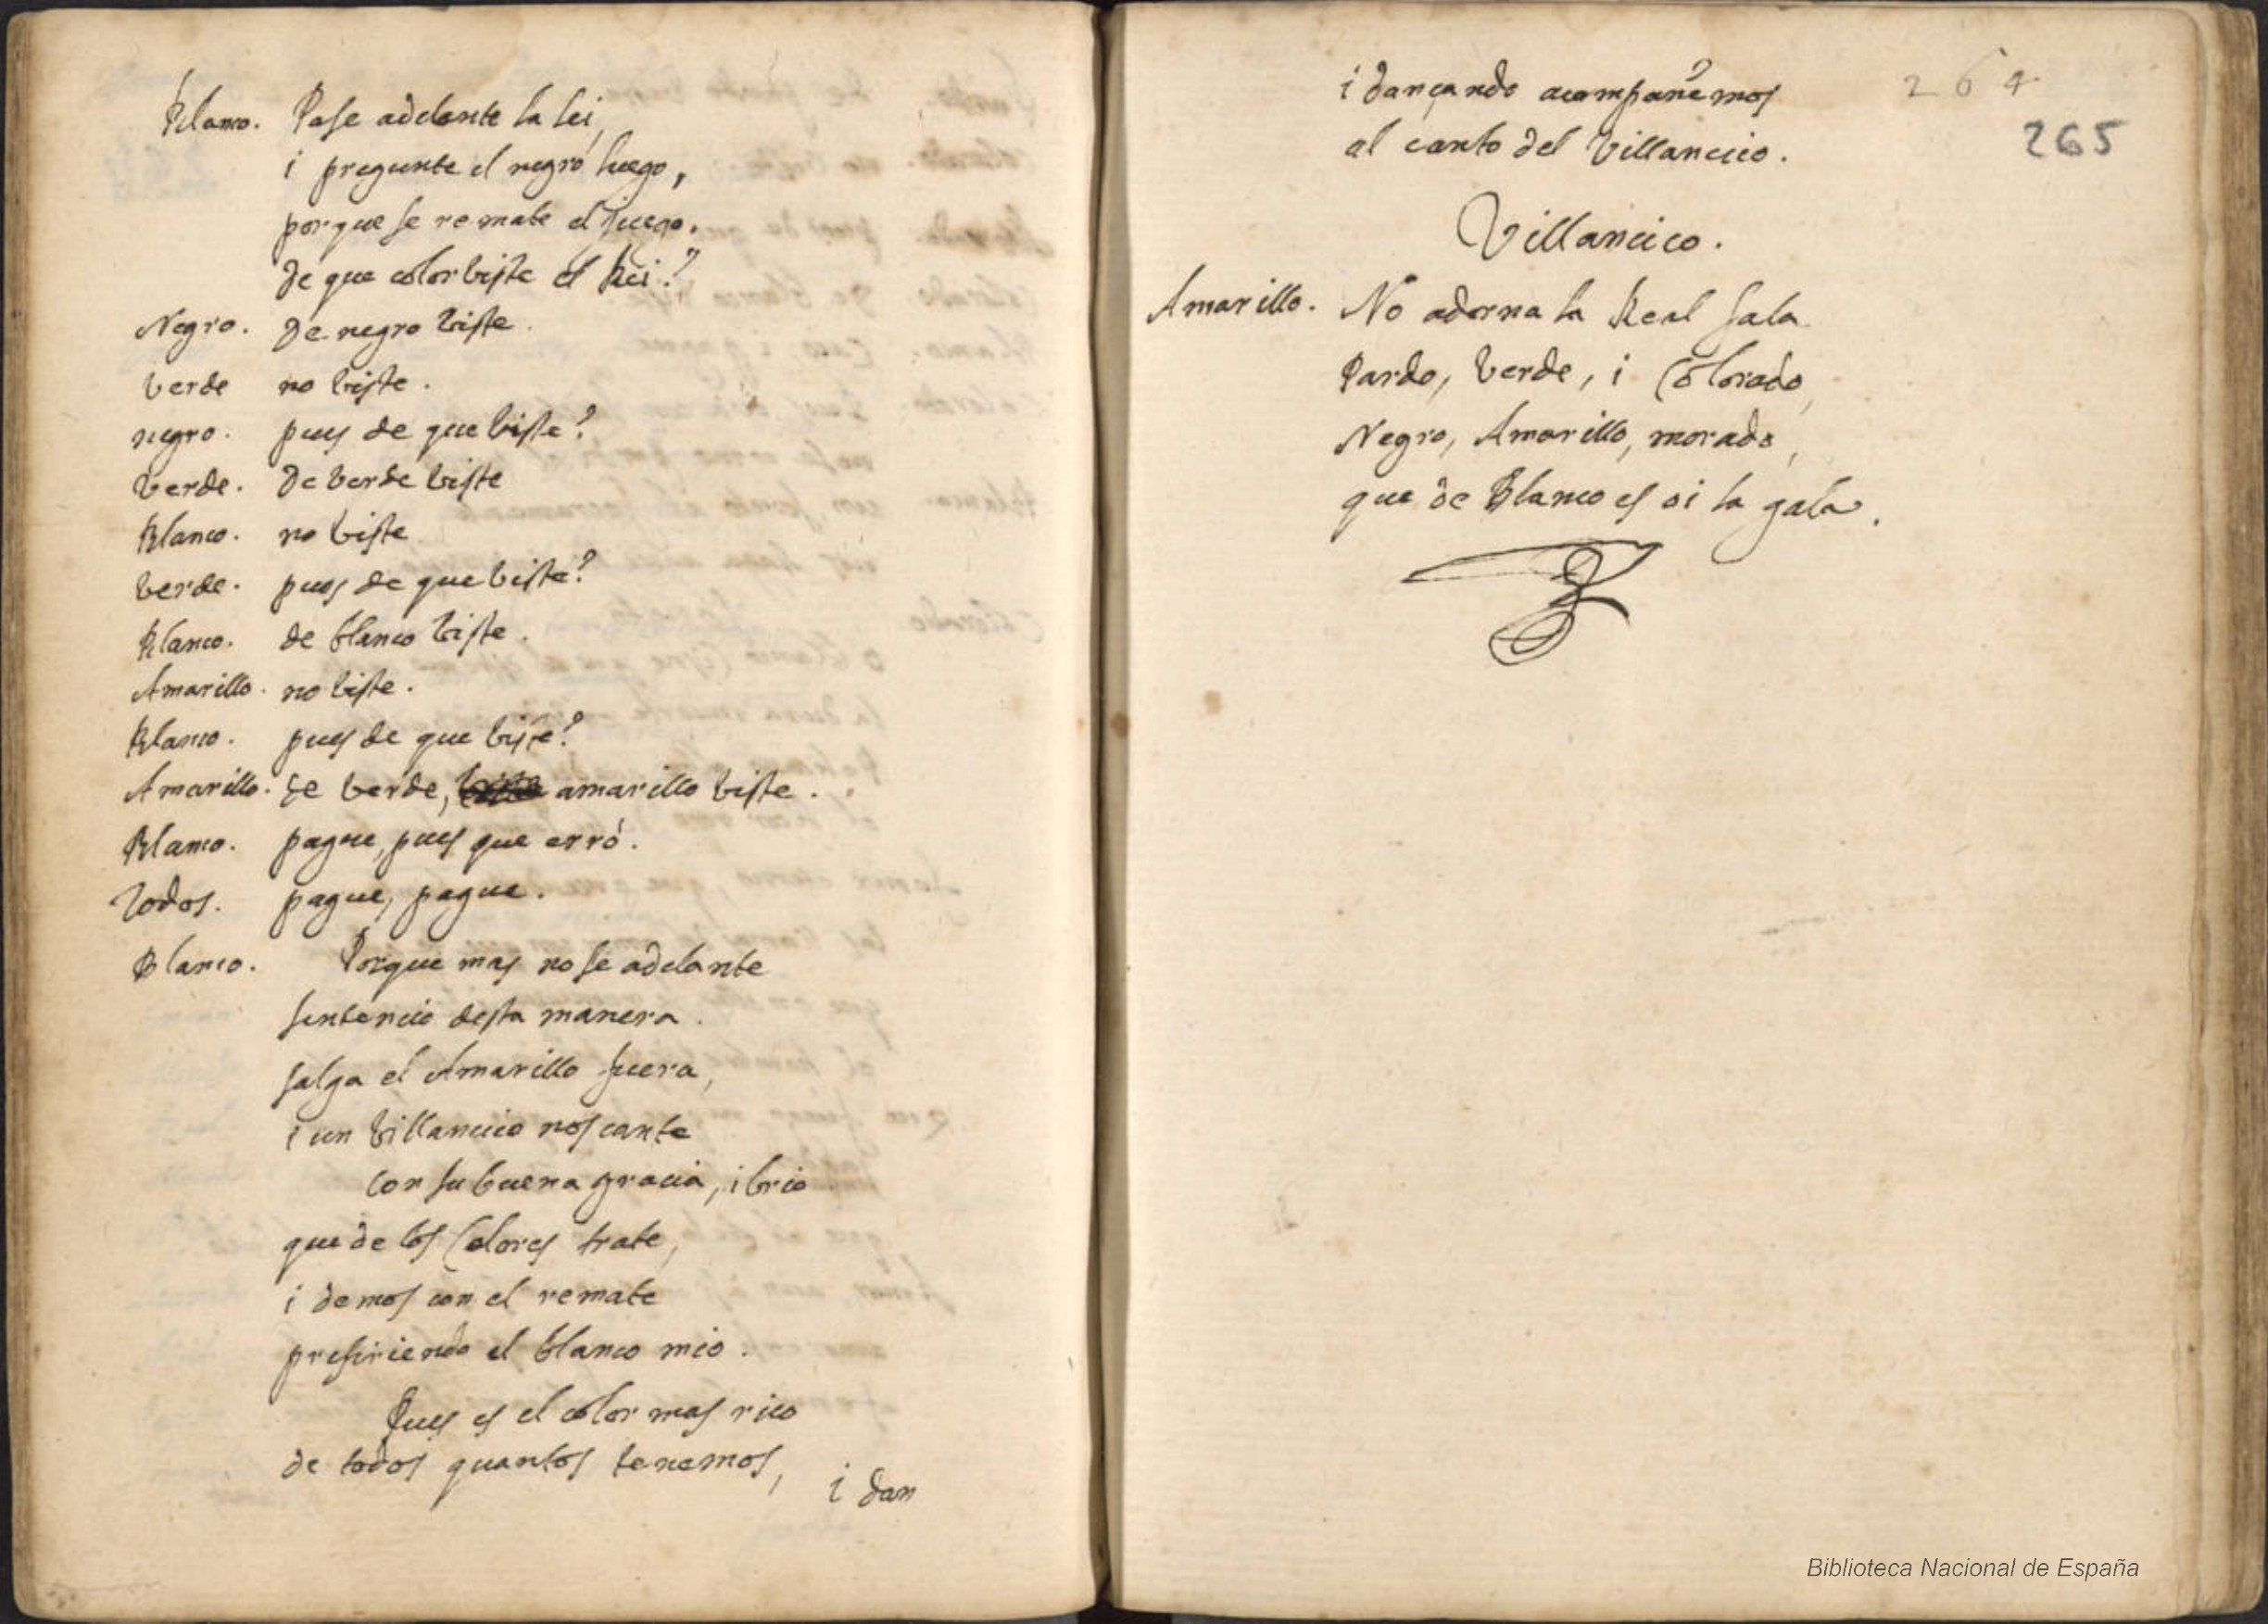 Blanco. Pase adelante la lei,
i pregunte el negro luego,
porque se remate el juego.
De que color biste el Rei?
Negro. De negro biste.
berde no biste.
negro. pues de que biste?
berde. De berde biste
Blanco. no biste
berde. pues de que biste?
Blanco. de blanco biste.
Amarillo. no biste.
Blanco. pues de que biste?
Amarillo. de berde, amarillo biste.
Blanco. pague, pues que erró.
Todos. pague, pague.
Blanco. Porque mas no se adelante
sentencio desta manera.
salga el Amarillo fuera,
i un billancico nos cante
Con su buena gracia, i brio
que de los Colores trate,
i demos con el remate
prefiriendo el blanco mio.
Pues es el color mas rico
de todos quantos tenemos,
i dan
i dançando acompañemos
al canto del Villancico.
264
265
Villancico.
Amarillo. No adorna la Real sala
Pardo, berde, i Colorado,
Negro, Amarillo, morado,
que de Blanco es oi la gala.
Biblioteca Nacional de España